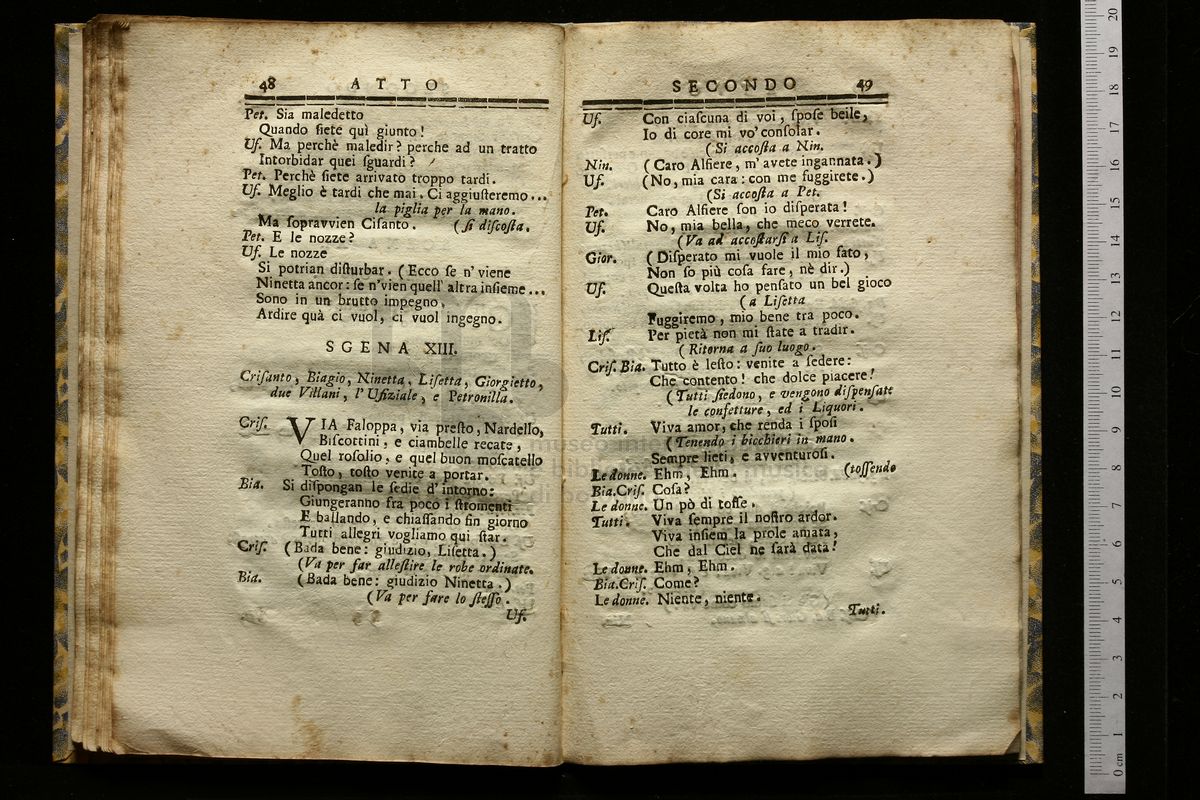 48 ATTO
Pet. Sia maledetto
Quando ſiete quì giunto!
Uf. Ma perchè maledir? perche ad un tratto
Intorbidar quei ſguardi?
Pet. Perchè ſiete arrivato troppo tardi.
Uf. Meglio è tardi che mai. Ci aggiuſteremo...
la piglia per la mano.
Ma ſopravvien Ciſanto. (ſi diſcoſta.
Pet. E le nozze?
Uf. Le nozze
Si potrian diſturbar. (Ecco ſe n'viene
Ninetta ancor: ſe n'vien quell' altra inſieme...
Sono in un brutto impegno,
Ardire quà ci vuol, ci vuol ingegno.
SGENA XIII.
Criſanto, Biagio, Ninetta, Liſetta, Giorgietto,
due Villani, l'Ufiziale, e Petronilla.
Criſ. VIA Faloppa, via preſto, Nardello,
Biſcottini, e ciambelle recate,
Quel roſolio, e quel buon moſcatello
Toſto, toſto venite a portar.
Bia. Si diſpongan le ſedie d'intorno:
Giungeranno fra poco i ſtromenti
E ballando, e chiaſſando fin giorno
Tutti allegri vogliamo qui ſtar.
Criſ. (Bada bene: giudizio, Liſetta.)
(Va per far alleſtire le robe ordinate.
Bia. (Bada bene: giudizio Ninetta.)
(Va per fare lo ſteſſo.
Uf.
SECONDO 49
Uf. Con ciaſcuna di voi, ſpoſe belle,
Io di core mi vo' conſolar.
(Si accoſta a Nin.
Nin. (Caro Alfiere, m'avete ingannata.)
Uf. (No, mia cara: con me fuggirete.)
(Si accoſta a Pet.
Pet. Caro Alfiere ſon io diſperata!
Uf. No, mia bella, che meco verrete.
(Va ad accoſtarſi a Liſ.
Gior. (Diſperato mi vuole il mio fato,
Non ſo più coſa fare, nè dir.)
Uf. Queſta volta ho penſato un bel gioco
(a Liſetta
Fuggiremo, mio bene tra poco.
Liſ. Per pietà non mi ſtate a tradir.
(Ritorna a ſuo luogo.
Criſ. Bia. Tutto è leſto: venite a ſedere:
Che contento! che dolce piacere!
(Tutti ſiedono, e vengono diſpenſate
le confetture, ed i Liquori.
Tutti. Viva amor, che renda i ſpoſi
(Tenendo i bicchieri in mano.
Sempre lieti, e avventuroſi.
Le donne. Ehm, Ehm. (toſſendo
Bia.Criſ. Coſa?
Le donne. Un pò di toſſe.
Tutti. Viva ſempre il noſtro ardor.
Viva inſiem la prole amata,
Che dal Ciel ne ſarà data!
Le donne. Ehm, Ehm.
Bia.Criſ. Come?
Le donne. Niente, niente.
Tutti.